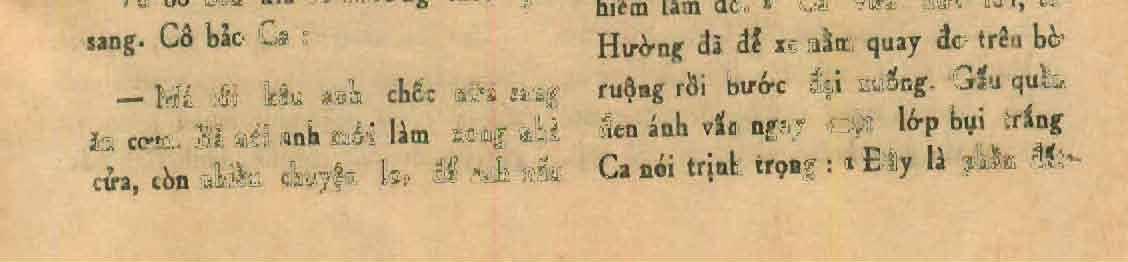 sang. Cô bảo Ca :
— Má tôi kêu anh chốc nữa sang
ăn cơm. Bà nói anh mới làm xong nhà
cửa, còn nhiều chuyện lo, để anh nấu
Hường đã để xe nằm quay đơ trên bờ
ruộng rồi bước đại xuống. Gấu quần
đen ánh vấn ngay một lớp bụi trắng
Ca nói trịnh trọng : « Đây là phần đất